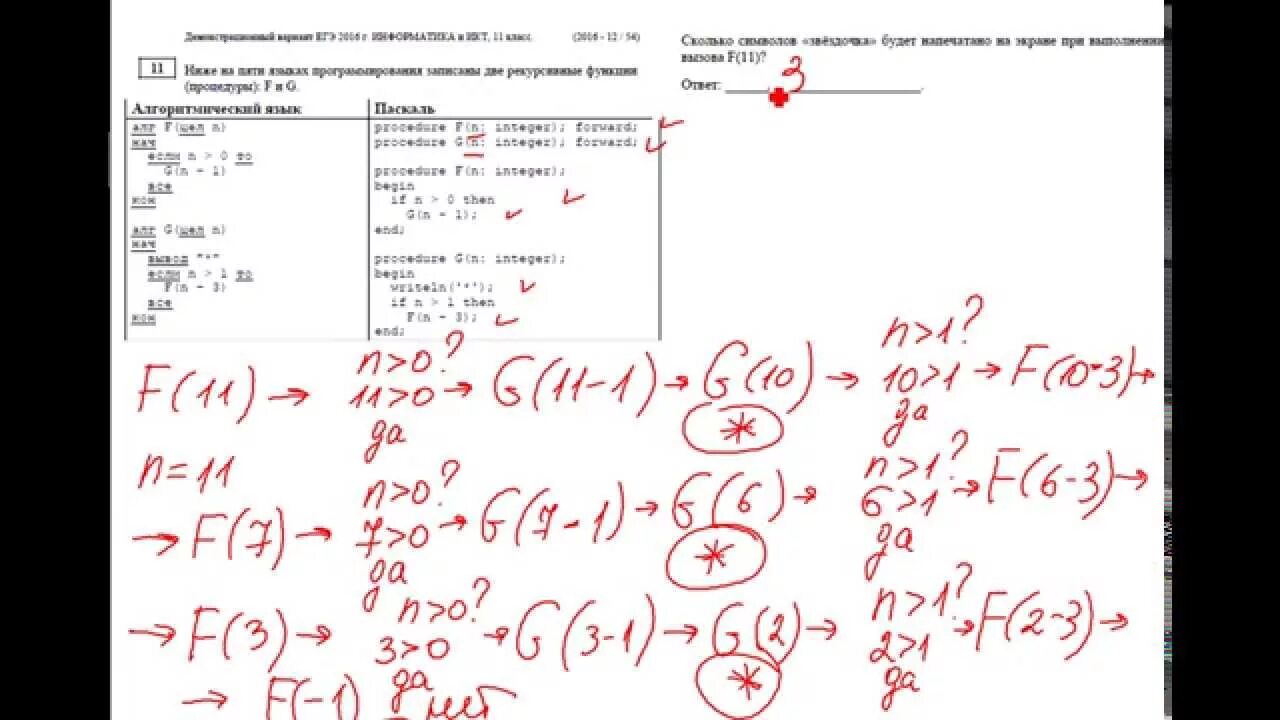 Демонстрационный вариант ЕГЭ 2016 г. ИНФОРМАТИКА и ИКТ, 11 класс. (2016 - 12 / 54)
11 Ниже на пяти языках программирования записаны две рекурсивные функции
(процедуры): F и G.
Алгоритмический язык
алг F(цел n)
нач
если n > 0 то
G(n - 1)
все
кон
алг G(цел n)
нач
вывод "*"
если n > 1 то
F(n - 3)
все
кон
Паскаль
procedure F(n: integer); forward;
procedure G(n: integer); forward;
procedure F(n: integer);
begin
if n > 0 then
G(n - 1);
end;
procedure G(n: integer);
begin
writeln('*');
if n > 1 then
F(n - 3);
end;
Сколько символов «звёздочка» будет напечатано на экране при выполнении
вызова F(11)?
Ответ: 3
n>0? n>1?
F(11) → 11>0 → G(11-1) → G(10) → 10>1 → F(10-3) →
да * да
n=11 n>0? n>1?
→ F(7) → 7>0 → G(7-1) → G(6) → 6>1 → F(6-3) →
да * да
n>0? n>1?
→ F(3) → 3>0 → G(3-1) → G(2) → 2>1 → F(2-3) →
да * да
→ F(-1) нет